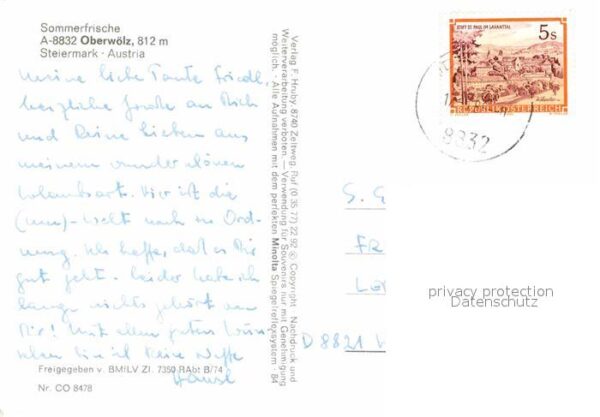 Sommerfrische
A-8832 Oberwölz, 812 m
Steiermark · Austria
Meine liebe Tante Friedl,
herzliche Grüße an Dich
und Deine Lieben aus
meinem wunderschönen
Urlaubsort. Hier ist die
(Um)-Welt noch in Ord-
nung. Ich hoffe, daß es Dir
gut geht. Leider habe ich
lange nichts gehört von
Dir! Mit allen guten Wün-
schen bin ich Deine Nichte
Freigegeben v. BMfLV Zl. 7350 RAbt B/74
Nr. CO 8478
Verlag F. Hruby, 8740 Zeltweg, Ruf (0 35 77) 22 92 © Copyright · Nachdruck und
Weiterverarbeitung verboten. — Verwendung für Souvenirs nur mit Genehmigung
möglich. · Alle Aufnahmen mit dem perfekten Minolta Spiegelreflexsystem · 84
STIFT ST. PAUL IM LAVANTTAL
5 S
REPUBLIK ÖSTERREICH
8832
S. G
FR
D 8821
privacy protection
Datenschutz